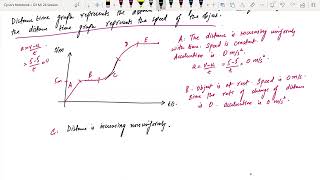 Distance time graph represents the
the distance time graph represents the speed of the object.
a = v-u/t
= 5-5/t
= 0 m/s²
D
E
B
C
A
A: The distance is increasing uniformly
with time. Speed is constant.
Acceleration is 0 m/s².
a = v-u/t = 5-5/t = 0 m/s²
B: Object is at rest. Speed is 0 m/s
Since the rate of change of distance
is 0. Acceleration is 0 m/s².
C: Distance is increasing nonuniformly.